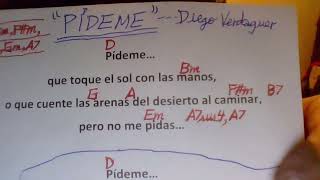 "PÍDEME"---Diego Verdaguer
m, F#m,
Gm, A7
D
Pídeme...
Bm
que toque el sol con las manos,
G A F#m B7
o que cuente las arenas del desierto al caminar,
Em A7sus4, A7
pero no me pidas...
D
Pídeme...